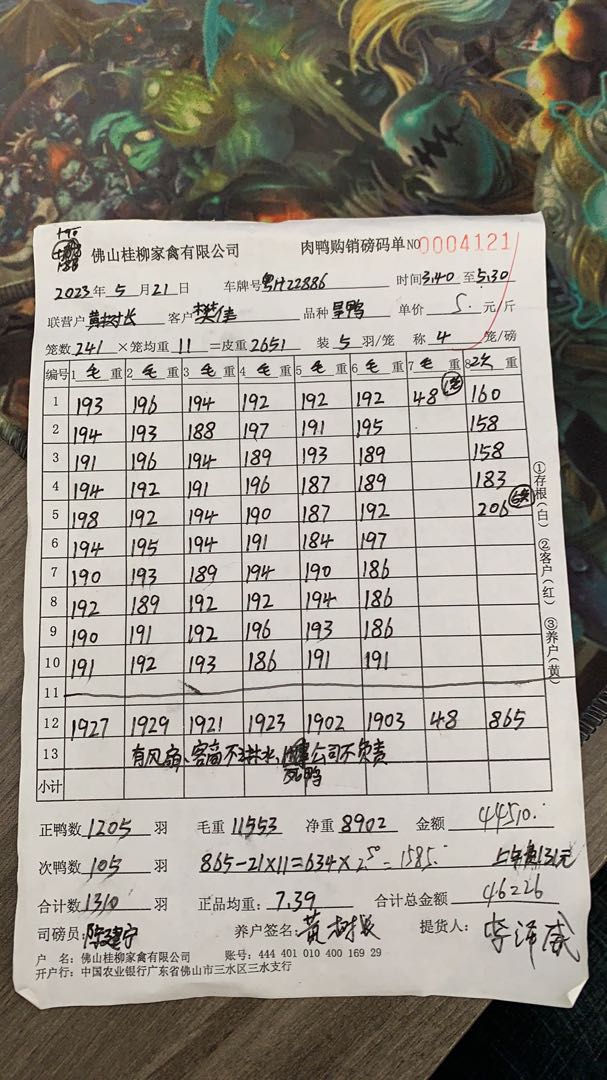 190
188
佛山桂柳家禽有限公司 肉鸭购销磅码单 NO 0004121
2023年5月21日 车牌号粤H22886 时间3.40至5.30
联营户黄树长 客户樊佳 品种旱鸭 单价5.元/斤
笼数241×笼均重11=皮重2651 装5羽/笼 称4笼/磅
编号 1毛重 2毛重 3毛重 4毛重 5毛重 6毛重 7毛重 8次重
1 193 196 194 192 192 192 48 160
2 194 193 188 197 191 195 158
3 191 196 194 189 193 189 158
4 194 192 191 196 187 189 183
5 198 192 194 190 187 192 206
6 194 195 194 191 184 197
7 190 193 189 194 190 186
8 192 189 192 192 194 186
9 190 191 192 196 193 186
10 191 192 193 186 191 191
11
12 1927 1929 1921 1923 1902 1903 48 865
13 有风扇、客商不淋水、公司不负责
死鸭
小计
正鸭数1205羽 毛重11553 净重8902 金额44510.
次鸭数105羽 865-21×11=634×2.50=1585. 131元
合计数1310羽 正品均重:7.39 合计总金额46226
司磅员:陈建宁 养户签名:黄树长 提货人:李泽威
户 名:佛山桂柳家禽有限公司 账号:444 401 010 400 169 29
开户行:中国农业银行广东省佛山市三水区三水支行
①存根(白) ②客户(红) ③养户(黄)